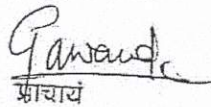 Gawande
प्राचार्य